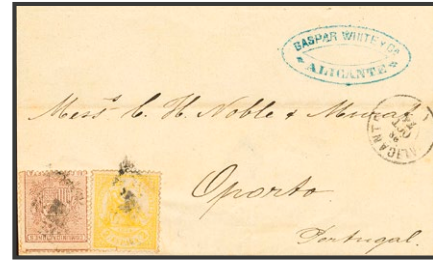 GASPAR WHITE Y Cª
ALICANTE
Mess.rs C. H. Noble & Murat
ALICANTE
Oporto
Portugal.